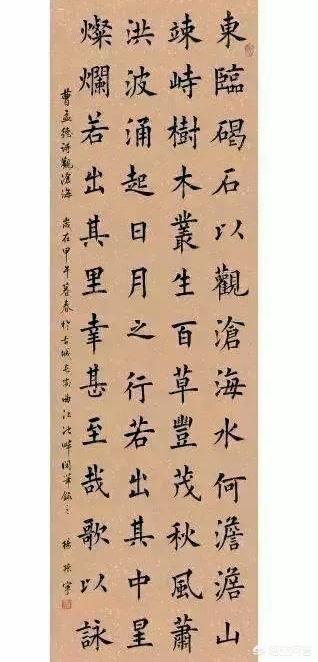 東臨碣石以觀滄海水何澹澹山
竦峙樹木叢生百草豐茂秋風蕭
洪波涌起日月之行若出其中星
燦爛若出其里幸甚至哉歌以詠
曹孟德詩觀滄海 歲在甲午暮春於古城長安曲江池畔